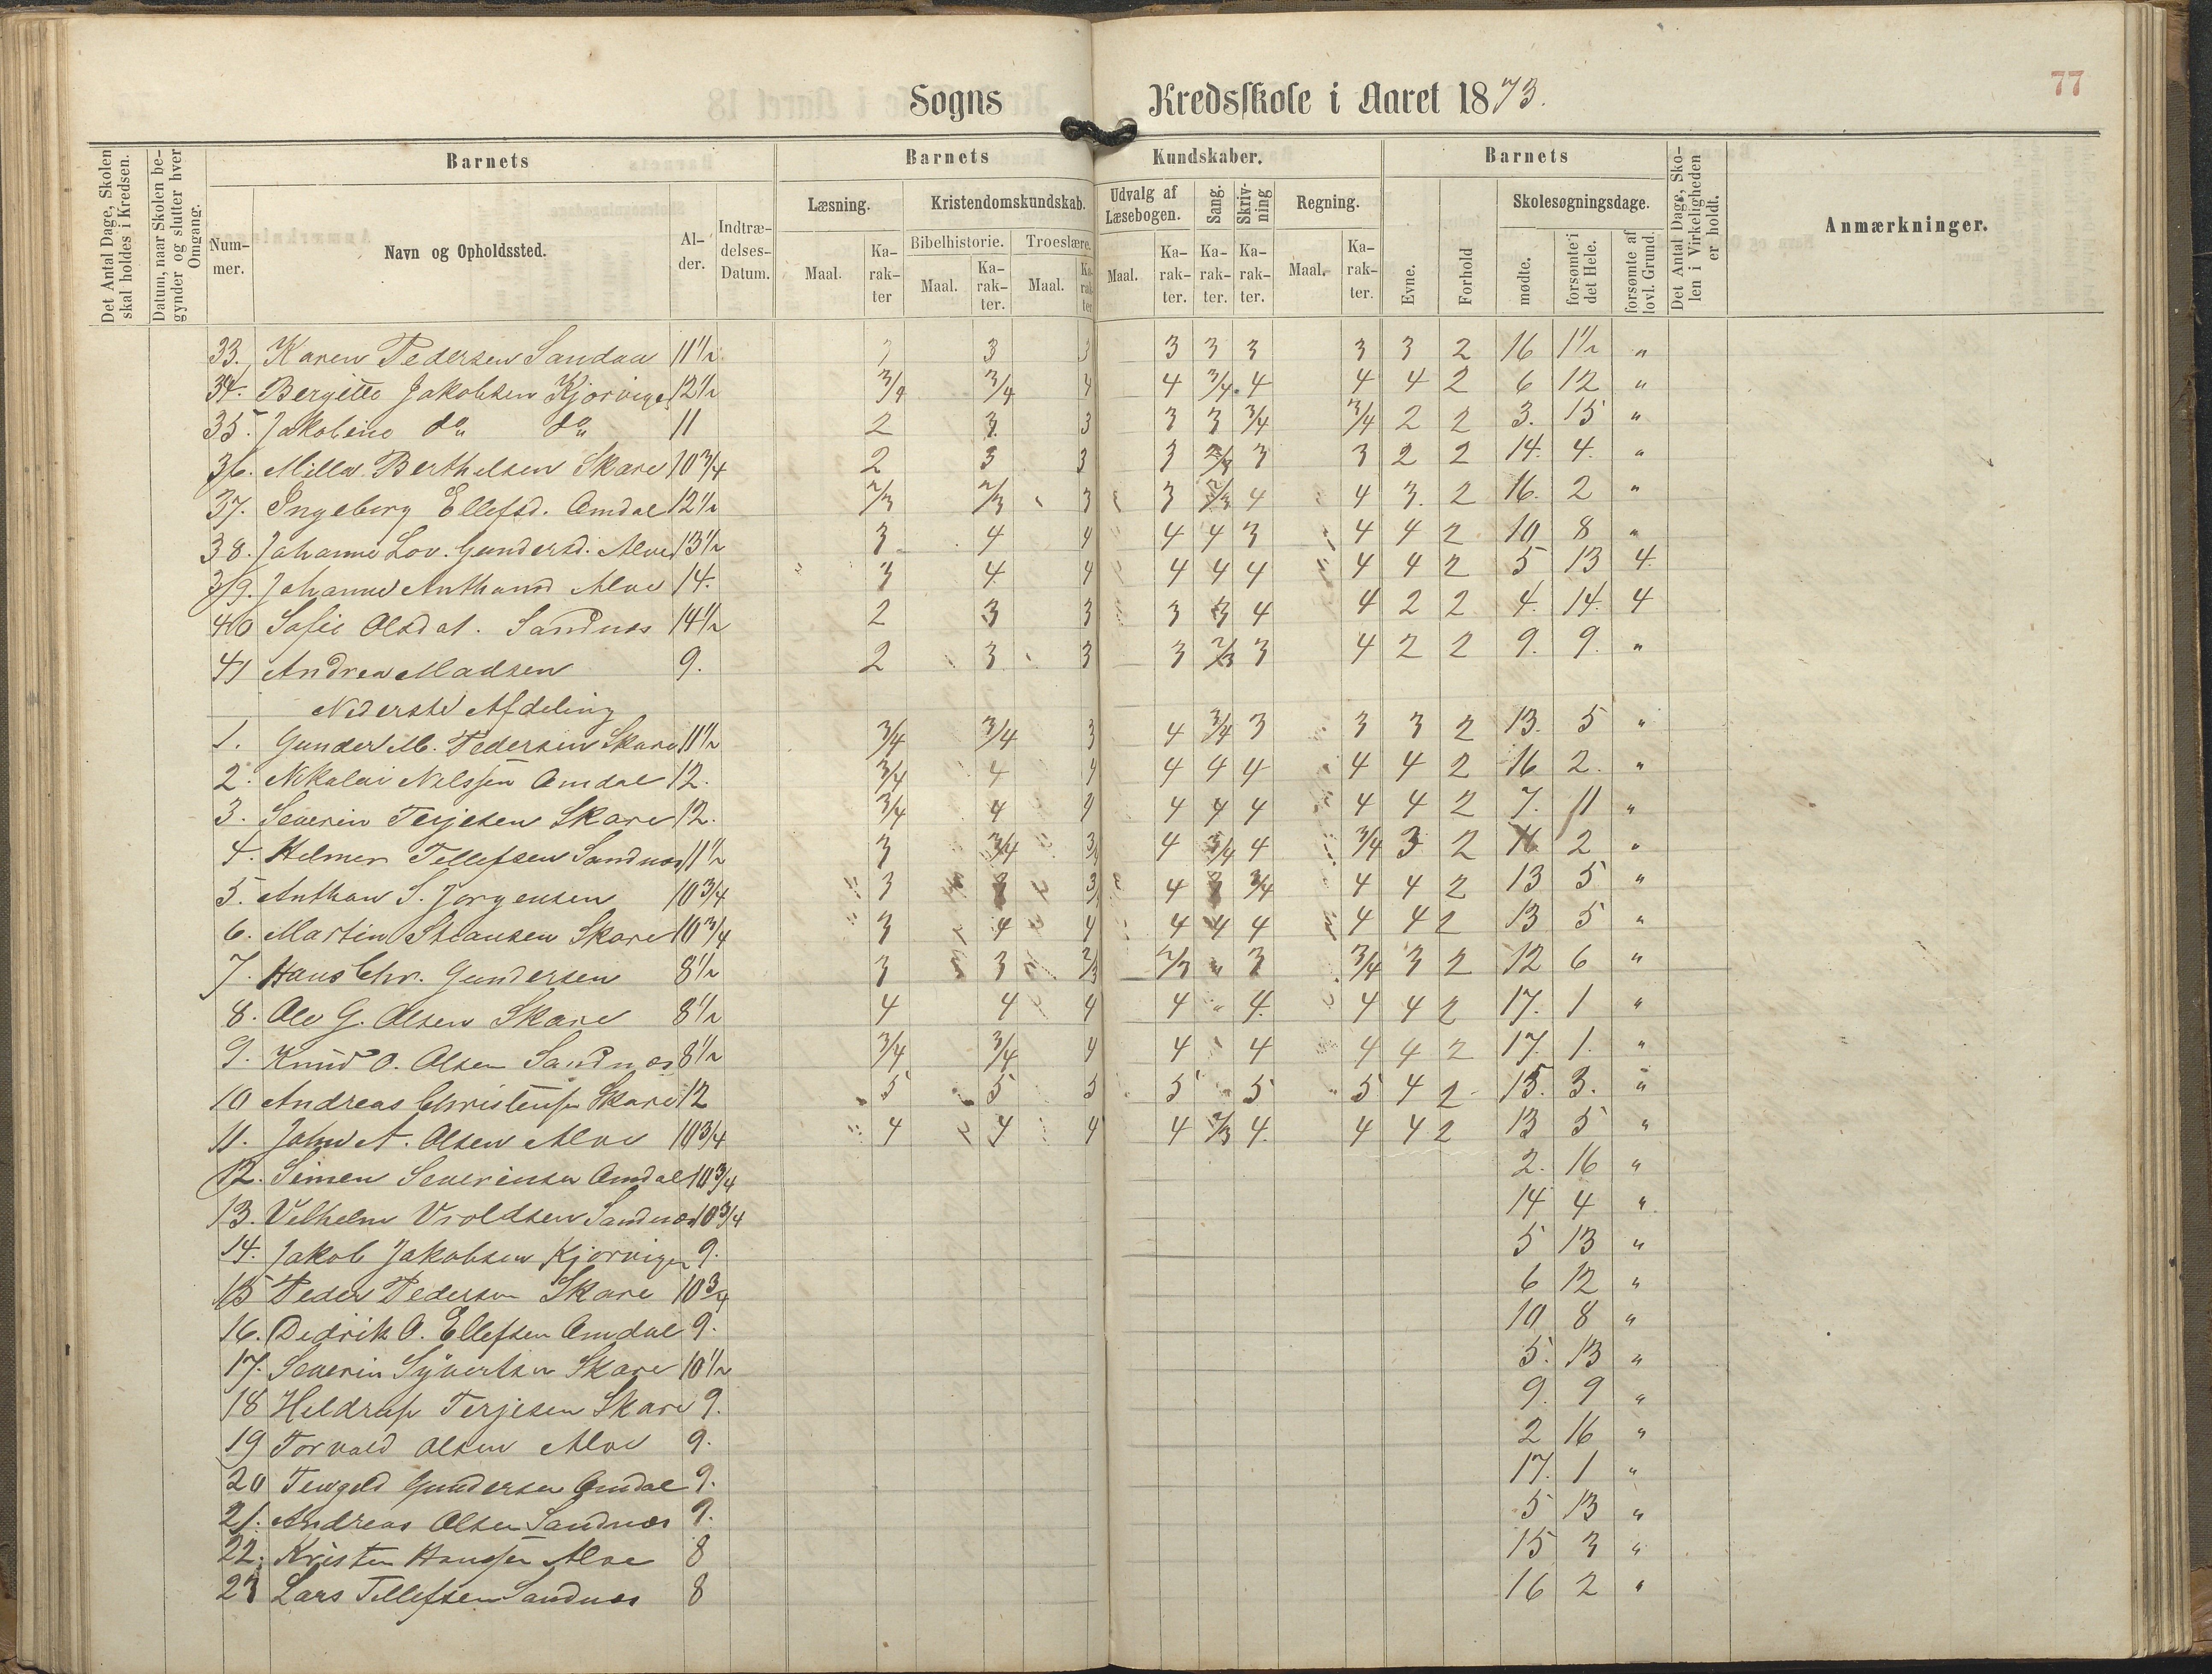 77
Sogns Kredsskole i Aaret 1873.
Det Antal Dage, Skolen skal holdes i Kredsen.
Datum, naar Skolen begynder og slutter hver Omgang.
Barnets
Nummer.
Navn og Opholdssted.
Alder.
Indtrædelses-Datum.
Barnets Kundskaber.
Læsning.
Maal.
Karakter
Kristendomskundskab.
Bibelhistorie.
Maal.
Karakter.
Troeslære.
Maal.
Karakter
Udvalg af Læsebogen.
Maal.
Karakter.
Sang.
Karakter.
Skrivning
Karakter.
Regning.
Maal.
Karakter.
Barnets
Evne.
Forhold
Skolesøgningsdage.
mødte.
forsømte i det Hele.
forsømte af lovl. Grund.
Det Antal Dage, Skolen i Virkeligheden er holdt.
Anmærkninger.
33. Karen Pedersen Sandaa 11½ 3 3 3 3 3 3 3 3 2 16 1½ "
34. Bergitte Jakobsen Kjørvigen 12½ 3/4 3/4 4 4 3/4 4 4 4 2 6 12 "
35. Jakobine do do 11 2 3 3 3 3 3/4 3/4 2 2 3. 15 "
36. Milla Berthelsen Skare 10¾ 2 3 3 3 2/3 3 3 2 2 14. 4. "
37. Ingeborg Ellefsd. Omdal 12½ 2/3 2/3 3 3 2/3 4 4 3. 2 16. 2 "
38. Johanne Lov. Gundersd. Alve 13½ 3 4 4 4 4 3 4 4 2 10 8 "
39. Johanne Anthons Alve 14. 3 4 4 4 4 4 4 4 2 5 13 4.
40 Sofie Olsdat. Sandnes 14½ 2 3 3 3 3 4 4 2 2 4. 14. 4
41 Andrea Madsen 9. 2 3 3 3 2/3 3 4 2 2 9. 9. "
Nederste Afdeling
1. Gunder M. Pedersen Skare 11½ 3/4 3/4 3 4 3/4 3 3 3 2 13. 5 "
2. Nikolai Nilssen Omdal 12. 3/4 4 4 4 4 4 4 4 2 16 2. "
3. Severin Terjesen Skare 12. 3/4 4 4 4 4 4 4 4 2 7. 11 "
4. Helmer Tellefsen Sandnes 11½ 3 3/4 3/4 4 3/4 4 3/4 3 2 16 2 "
5. Anthon S. Jørgensen 10¾ 3 3 4 3/4 4 4 2 13 5 "
6. Martin Skare 10¾ 3 4 4 4 4 4 4 4 2 13 5 "
7. Hans Chr. Gundersen 8½ 3 3 2/3 2/3 " 3 3/4 3 2 12 6 "
8. Ole G. Olsen Skare 8½ 4 4 4 4 " 4. 4 4 2 17. 1 "
9. Knud O. Olsen Sandnes 8½ 3/4 3/4 4 4 " 4 4 4 2 17. 1. "
10 Andreas Christensen Skare 12 5 5 5 5 " 5 5 4 2 15. 3. "
11. John A. Olsen Alve 10¾ 4 4 4 4 2/3 4. 4 4 2 13 5 "
12. Simen Severinsen Omdal 10¾ 2. 16 "
13. Vilhelm Violdsen Sandnes 10¾ 14 4 "
14. Jakob Jakobsen Kjørvigen 9. 5 13 "
15 Peder Pedersen Skare 10¾ 6 12 "
16. Dedrik O. Ellefsen Omdal 9. 10 8 "
17. Severin Syvertsen Skare 10½ 5. 13 "
18 Terjesen Skare 9. 9. 9 "
19 Torvald Olsen Alve 9. 2 16 "
20 Gundersen Omdal 9. 17. 1 "
21. Andreas Olsen Sandnes 9. 5 13 "
22. Kristen Hansen Alve 8 15 3 "
23 Lars Tellefsen Sandnes 8 16 2 "